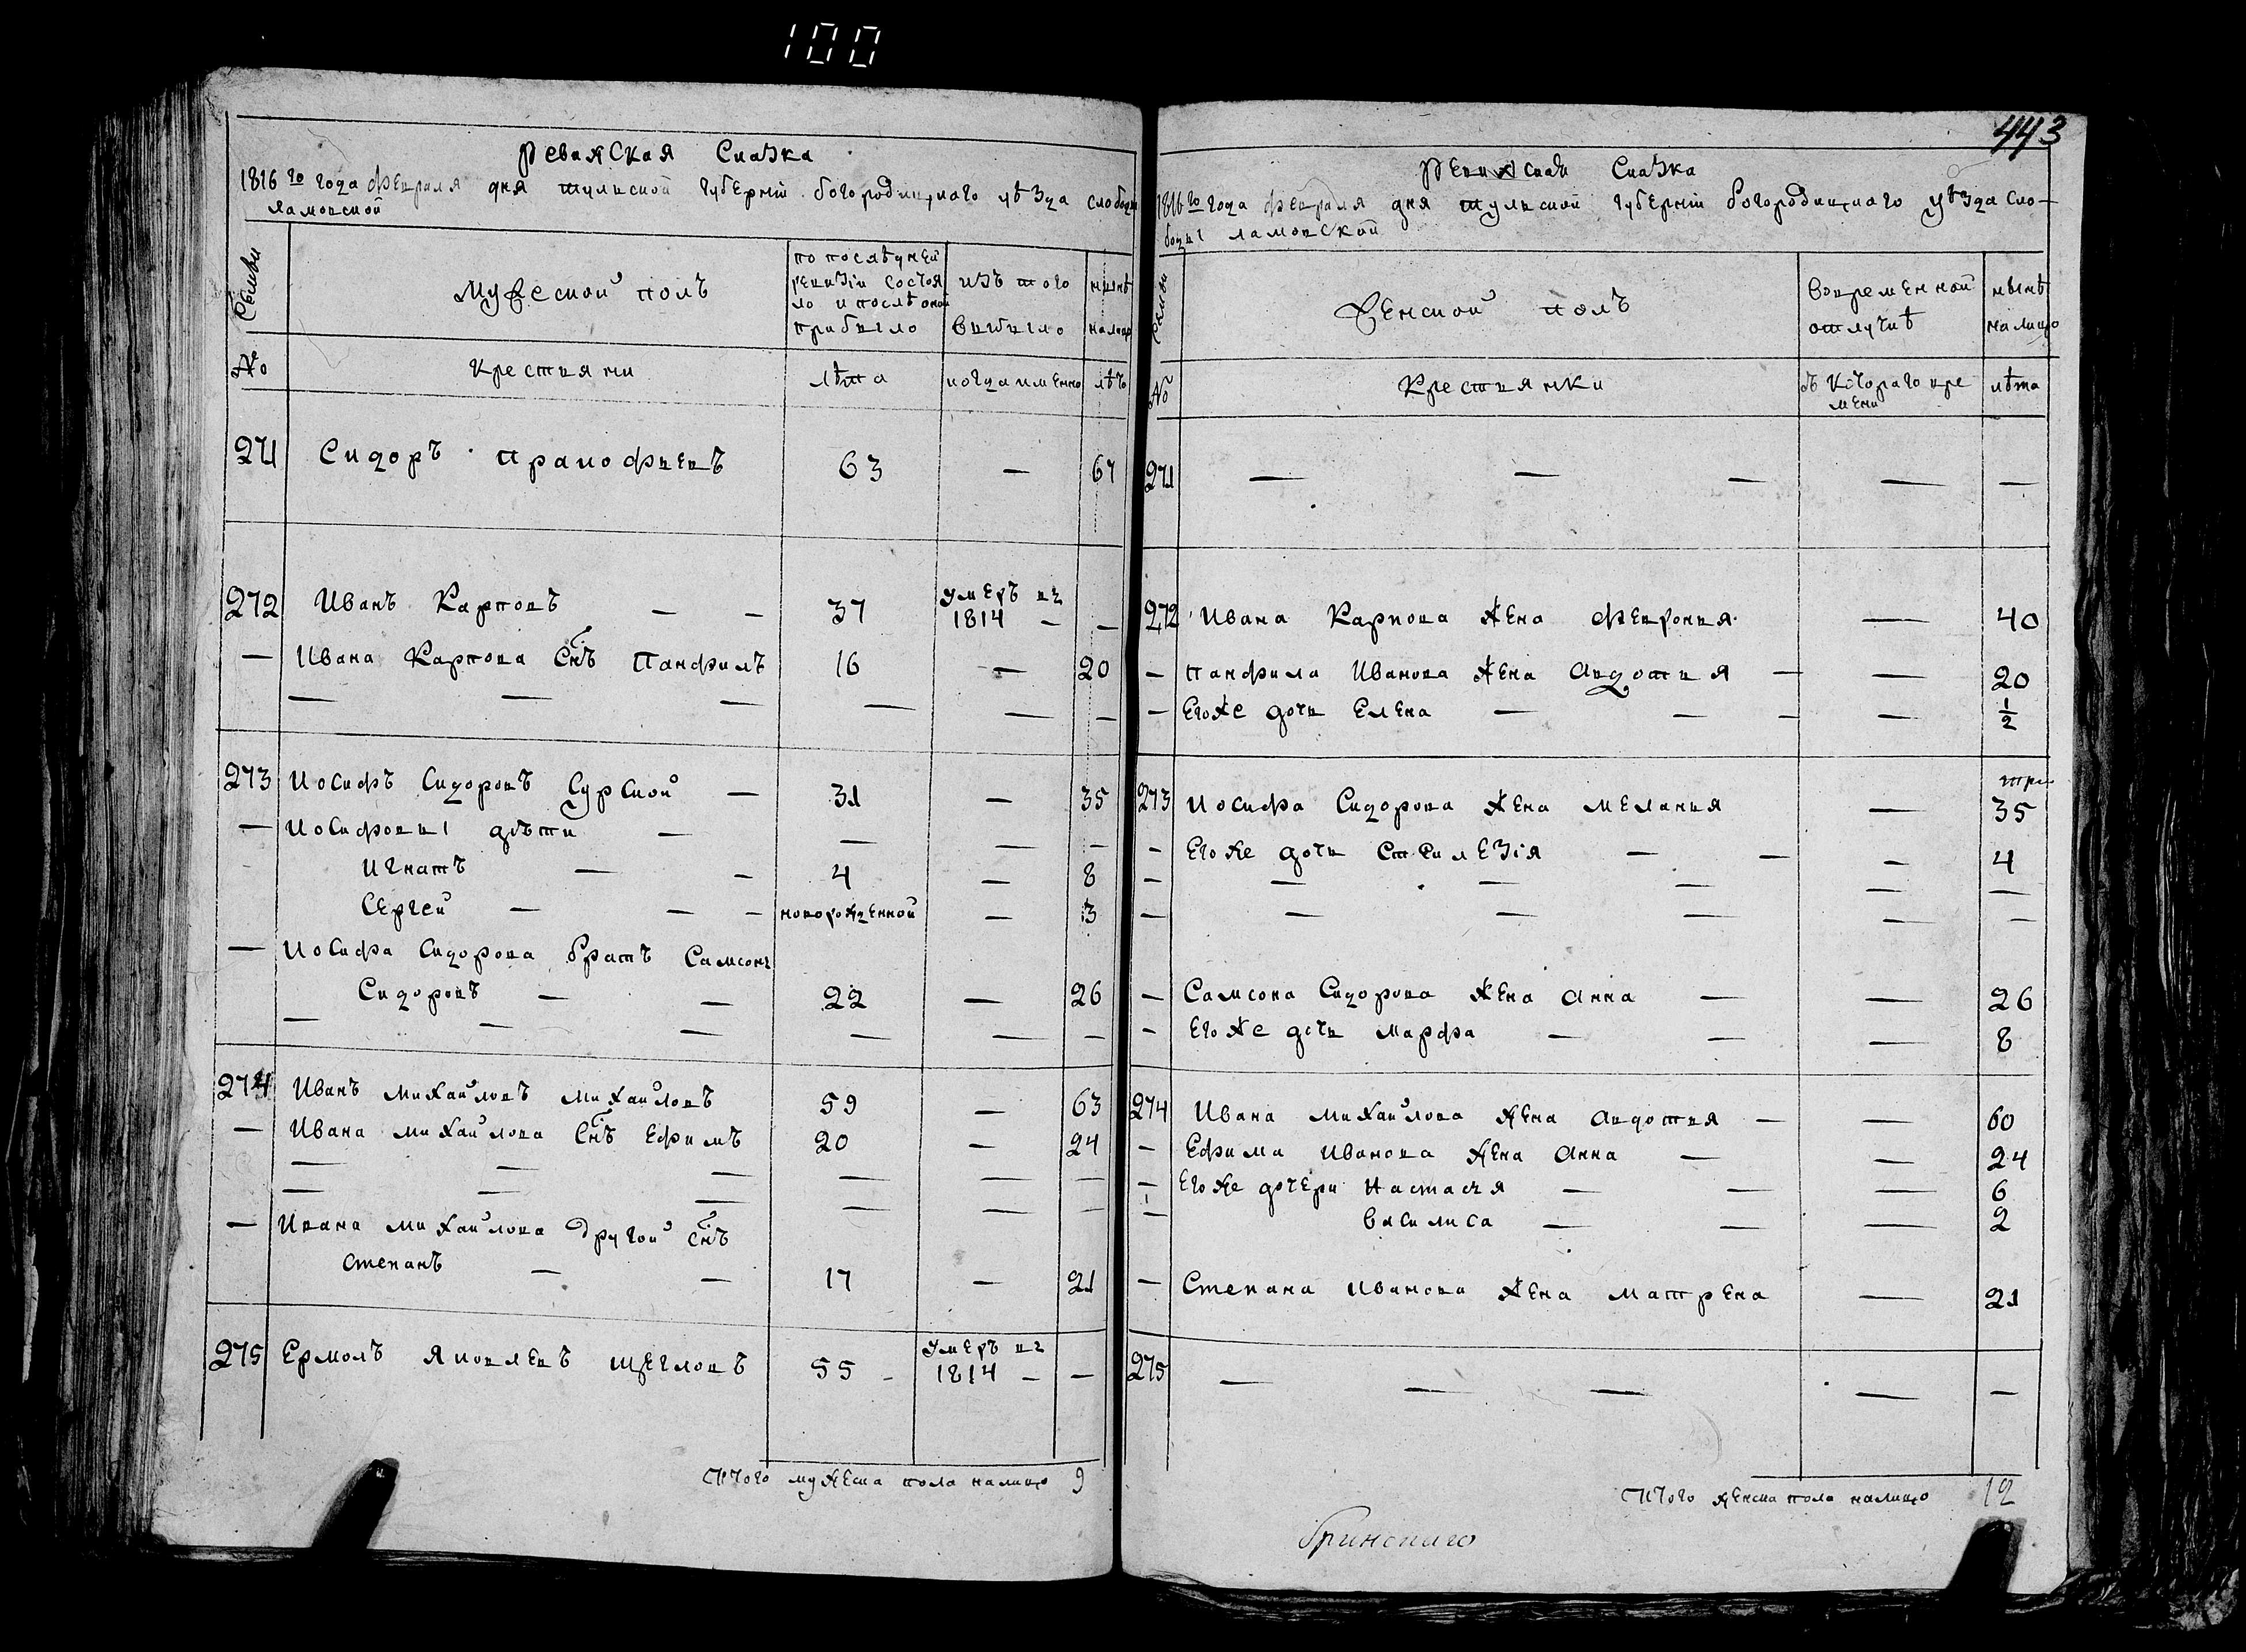 100
Ревижская Сказка
1816 го года февраля дня тульской губернїи богородицкого уѣзда слободы
ламовской
Семьи
Мужеской полъ
по послѣдней
ревизїи состоя
ло и послѣ оной
прибыло
изъ того
выбыло
нынѣ
налицо
№
Крестьяни
лѣта
когда именно
лѣтъ
271 Сидоръ Пракофьевъ 63 — 67
272 Иванъ Карповъ — — 37 умеръ въ 1814 — —
— Ивана Карпова Снъ Панфилъ 16 — 20
— — — — — —
273 Иосифъ Сидоровъ Сурской — 31 — 35
— Иосифовы дѣти — — — —
Игнатъ — — 4 — 8
Сергей — — — новорожденной — 3
— Иосифа Сидорова братъ Самсонъ
Сидоровъ — — 22 — 26
— — — — — —
274 Иванъ Михайловъ Михайловъ 59 — 63
— Ивана Михайлова Снъ Ефимъ 20 — 24
— — — — — —
— — — — — —
— Ивана Михайлова другой Снъ
Степанъ — — 17 — 21
275 Ермолъ Яковлевъ Щегловъ 55 — умеръ въ 1814 — —
Итого мужеска пола налицо 9
443
Ревижская Сказка
1816 го года февраля дня тульской губернїи богородицкаго уѣзда сло-
боды ламовской
Семьи
Женской полъ
Вовременной
отлучкѣ
нынѣ
налицо
№
Крестьянки
съ котораго вре
мени
лѣта
271 — — — — —
272 Ивана Карпова жена Февронья — 40
— Панфила Иванова жена Авдотья — — 20
— Егоже дочь Елена — — — — 1/2
273 Иосифа Сидорова жена Меланья — 35
— Егоже дочь — — — 4
— — — — — —
— — — — — —
— Самсона Сидорова жена Анна — — 26
— Егоже дочь Марфа — — — 8
274 Ивана Михайлова жена Авдотья — — 60
— Ефима Иванова жена Анна — — 24
— Егоже дочери Настасья — — — 6
— Василиса — — — 2
— Степана Иванова жена Матрена — 21
275 — — — — —
Итого женска пола налицо 12